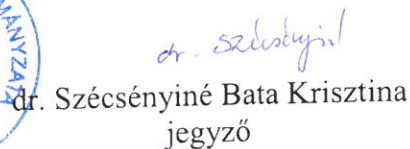 MÁNYZATA
dr. Szécsényiné
dr. Szécsényiné Bata Krisztina
jegyző